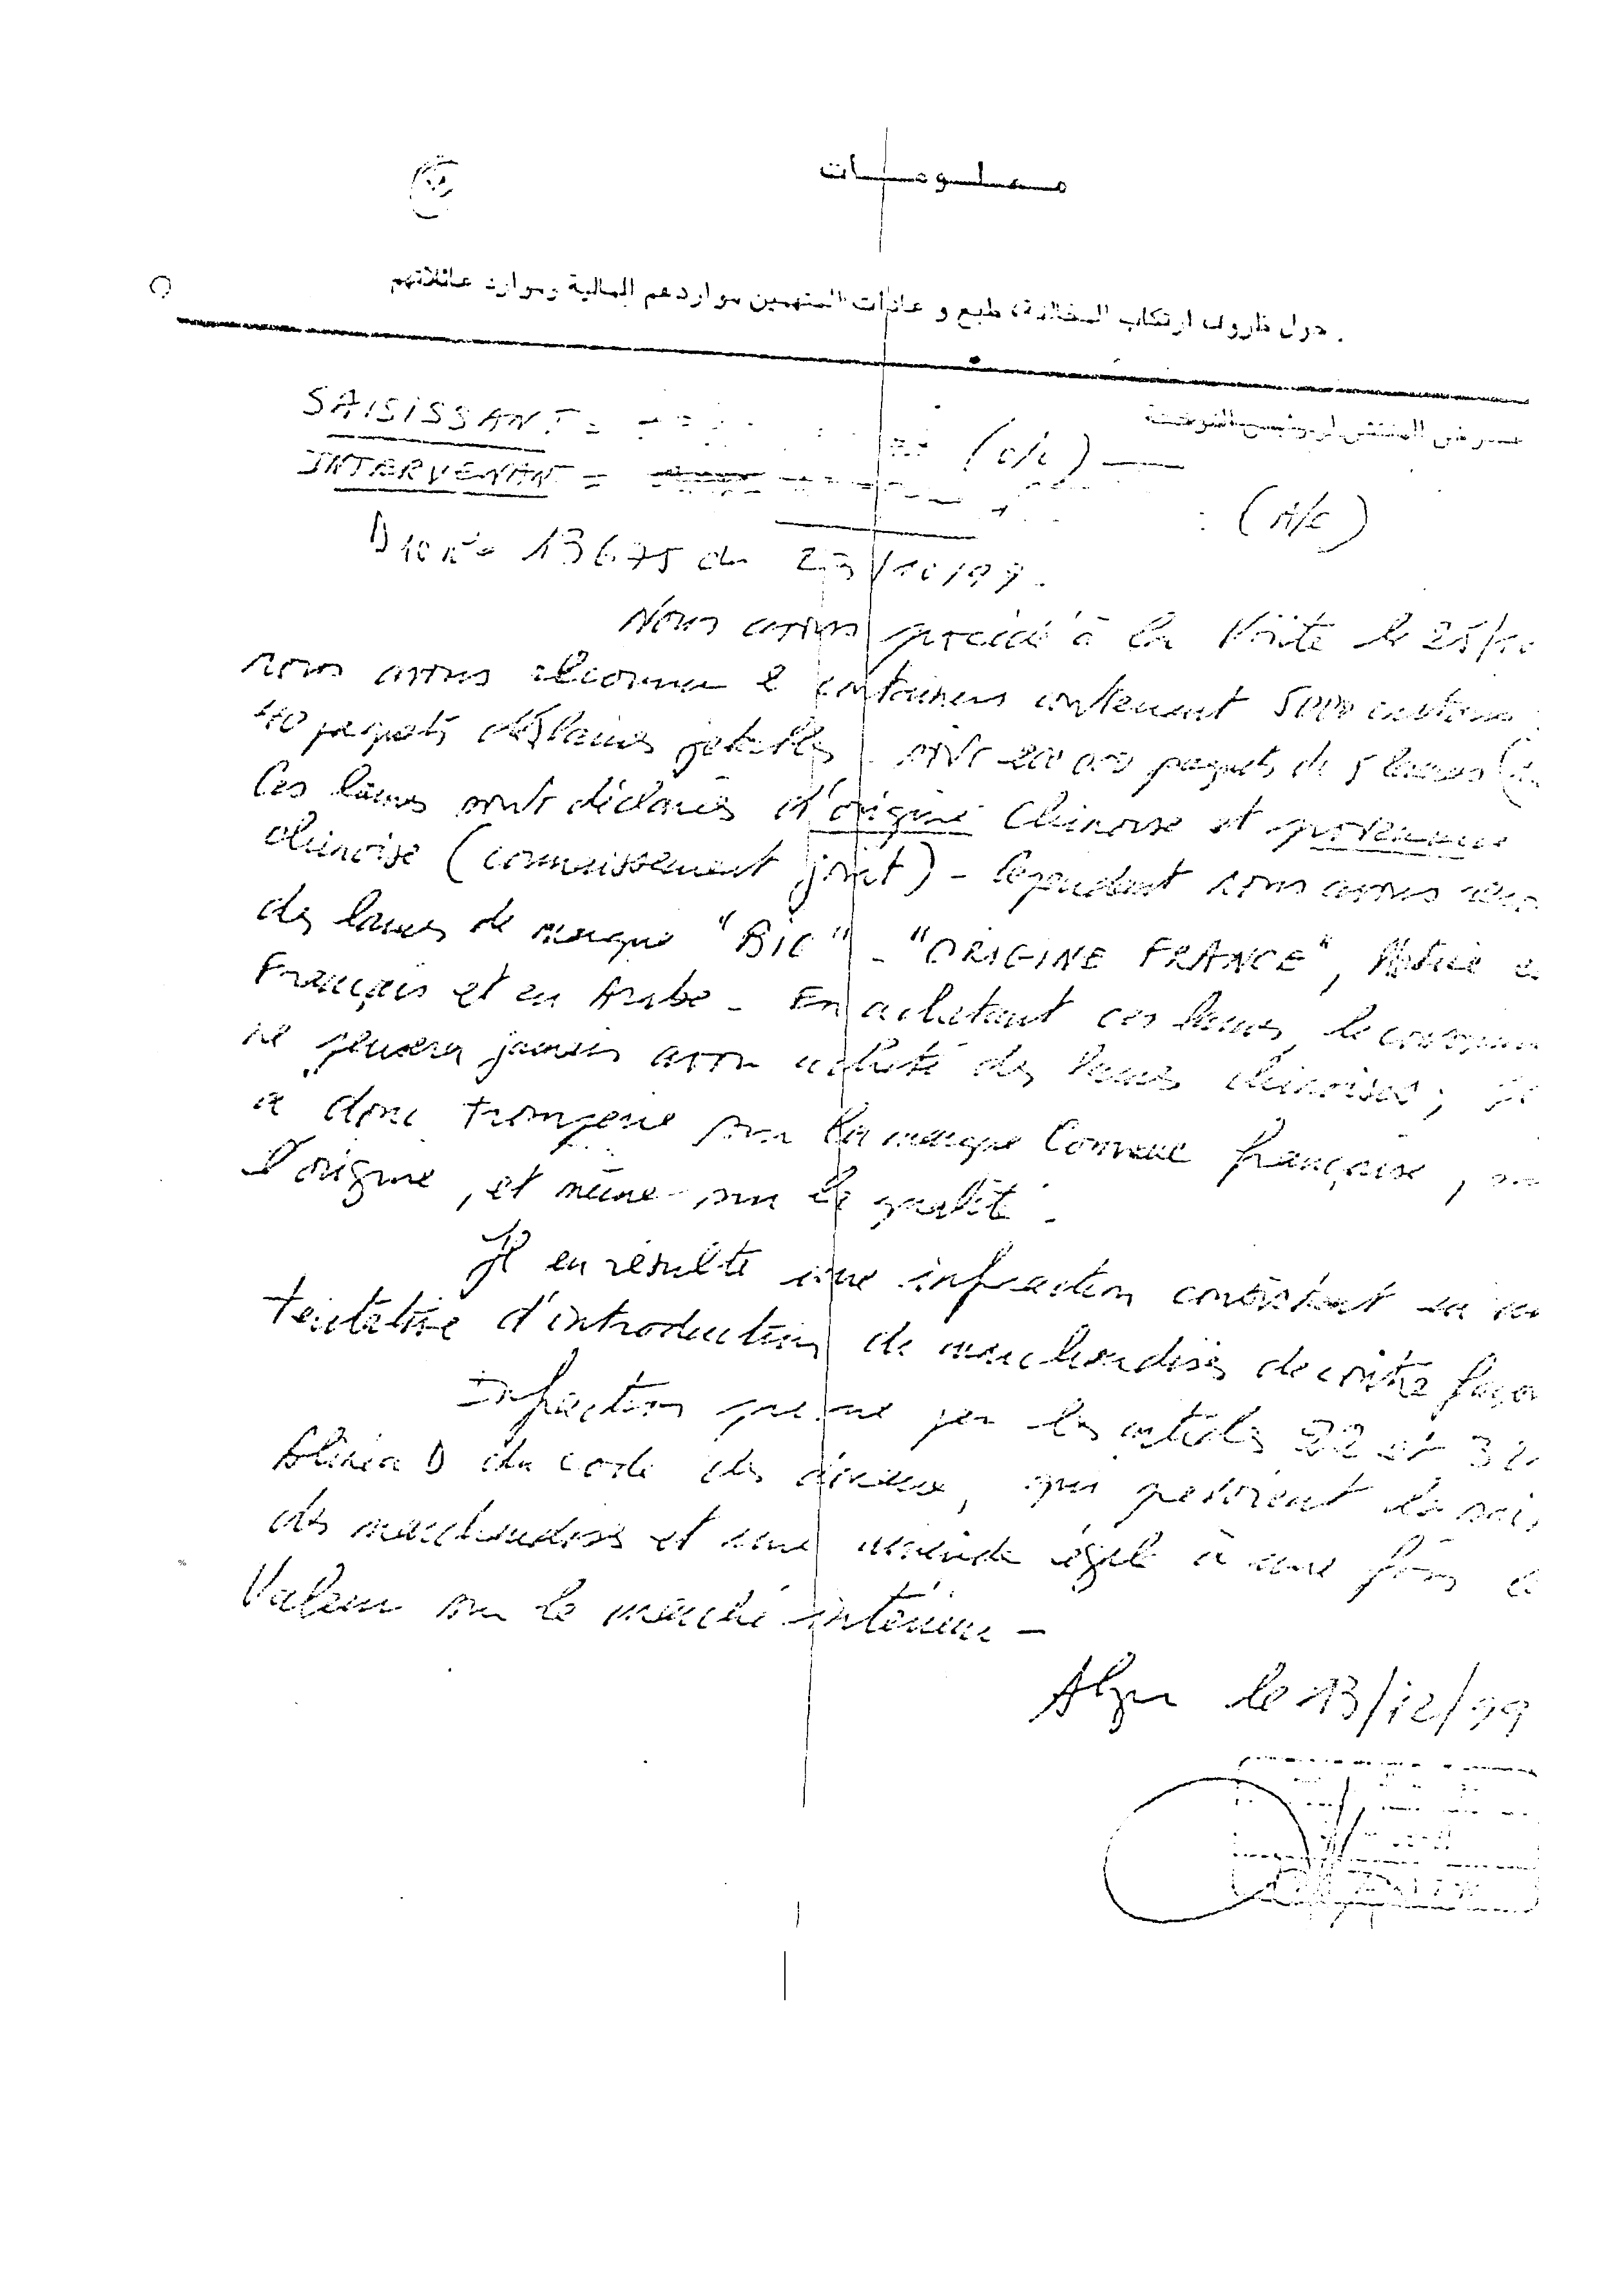 معلومات
حول ظروف ارتكاب المخالفة، طبع و عادات المتهمين مواردهم المالية وموارد عائلاتهم .
SAISISSANT = (o/c) —
INTERVENANT = (A/c)
D10 N° 13675 du 23/10/99.
Nous avons procédé à la Visite le 25/10
nous avons reconnu 2 containers contenant 5000 cartons
40 paquets de lames jetables soit 200 000 paquets de 5 lames
Ces lames sont déclarées d'origine Chinoise et provenance
chinoise (connaissement joint) - Cependant nous avons
des lames de marque "BIC" - "ORIGINE FRANCE", Notice
Français et en Arabe - En achetant ces lames, le
ne pensera jamais avoir acheté des lames chinoises;
a donc tromperie sur la marque Connue française,
l'origine, et même sur la qualité.
Il en résulte une infraction consistant en
tentative d'introduction de marchandises de contre façon
Infraction par les articles 22 et
Alinéa D du code des douanes, qui la
des marchandises et une amende égale à une fois
Valeur sur le marché intérieur -
Alger le 13/12/99